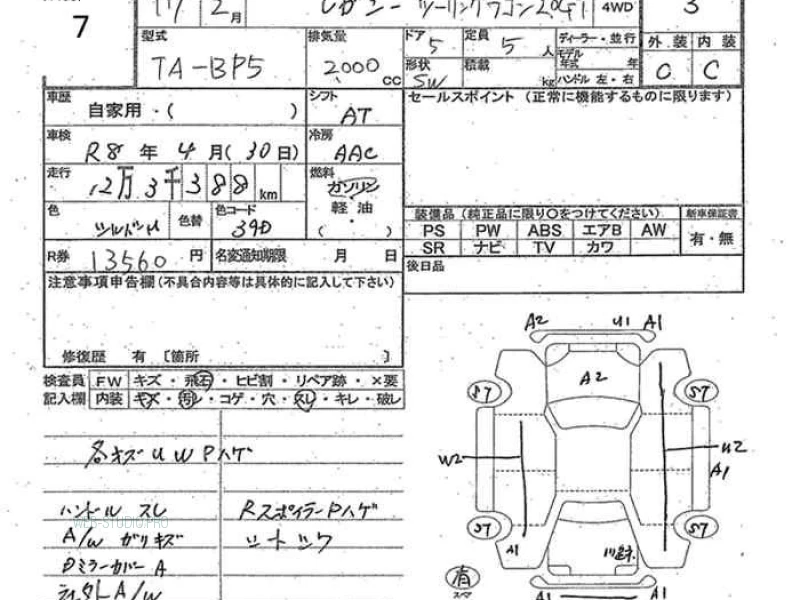 7
17 2月 レガシー ツーリングワゴン 2.0GT 4WD 3
型式 排気量 ドア 5 定員 5 人 ディーラー・並行 外装 内装
TA-BP5 2000 cc 形状 SW 積載 kg モデル年式 年 ハンドル 左・右 C C
車歴 自家用・( ) シフト AT セールスポイント (正常に機能するものに限ります)
車検 R8 年 4 月( 30 日) 冷房 AAC
走行 12万3千388 km 燃料 ガソリン・軽油 ( )
色 色替 色コード 39D
装備品 (純正品に限り○をつけてください) 新車保証書
PS PW ABS エアB AW 有・無
SR ナビ TV カワ
R券 13560 円 名変通知期限 月 日 後日品
注意事項申告欄(不具合内容等は具体的に記入して下さい)
修復歴 有 〔箇所 〕
検査員 FW キズ・飛石・ヒビ割・リペア跡・×要
記入欄 内装 キズ・汚レ・コゲ・穴・スレ・キレ・破レ
各キズ U W Pハゲ
ハンドル スレ Rスポイラー Pハゲ
WEB-STUDIO.PRO
A/W ガリキズ シートシワ
Dミラーカバー A
A/W
A2 U1 A1
A2
ST ST
W2 U2
A1
ST ST
A1
A1 A1